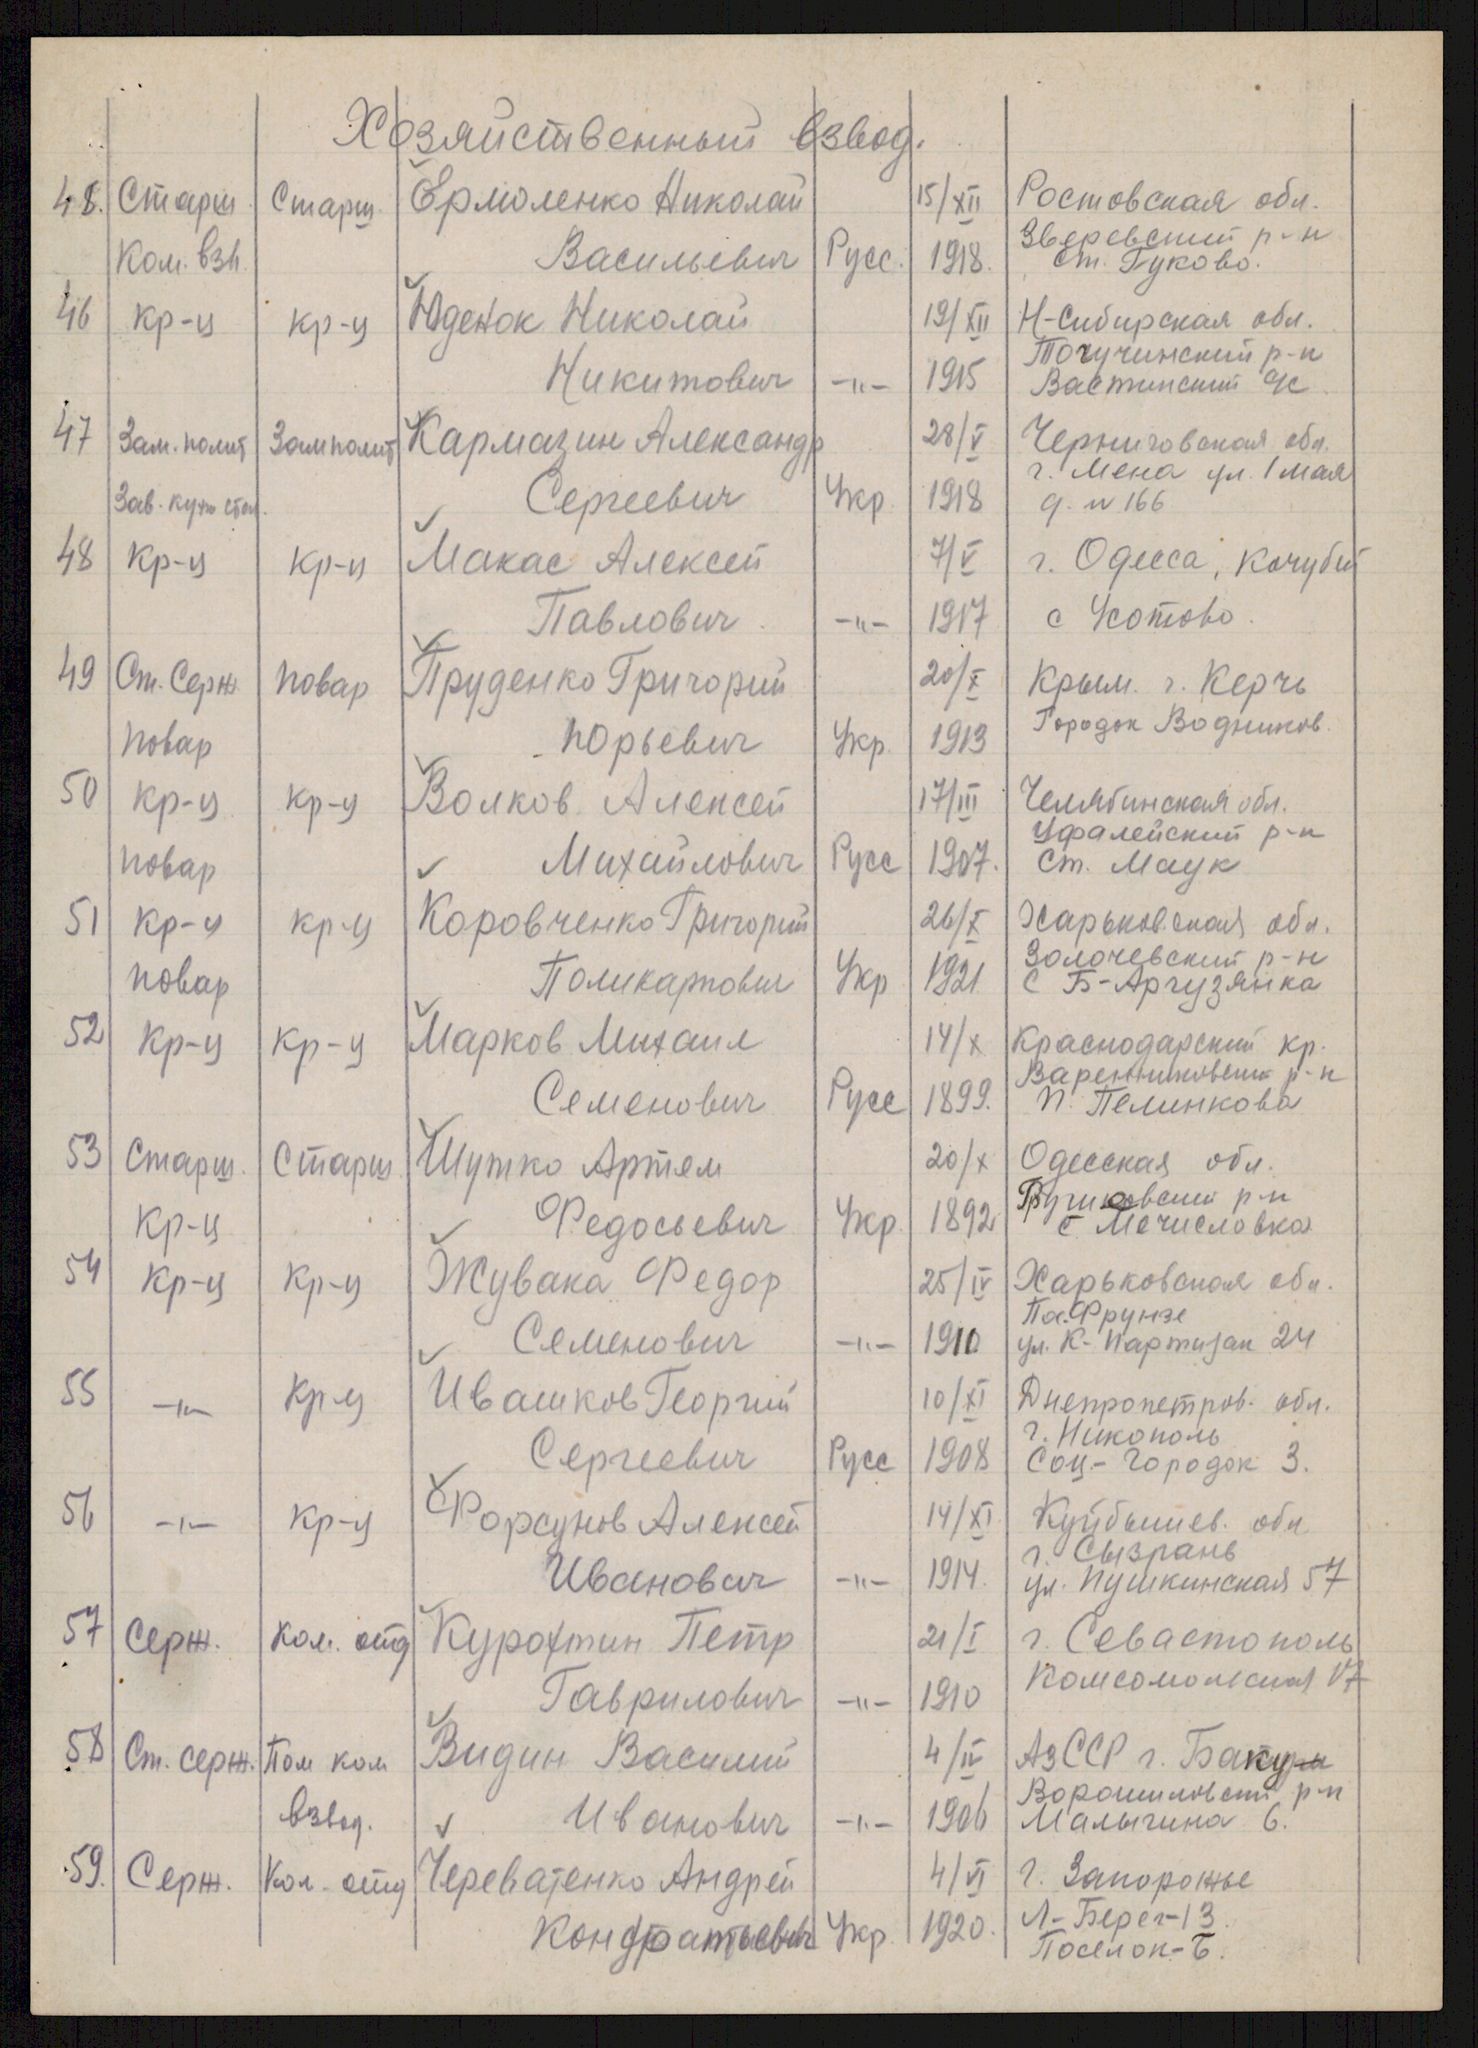 Хозяйственный взвод.
48. Старш. Старш. Ермоленко Николай 15/XII Ростовская обл.
Зверевский р-н
Ком. взв. Васильевич Русс. 1918. ст. Гуково.
46 кр-ц кр-ц Юденок Николай 19/XII Н-Сибирская обл.
Тогучинский р-н
Никитович -"- 1915 Вастинский с/с
47 Зам. полит Замполит Кармазин Александр 28/V Черниговская обл.
г. Мена ул. 1 мая
Зав. кухн стол. Сергеевич Укр. 1918 д. № 166
48 кр-ц кр-ц Макас Алексей 7/V г. Одесса, Кочубей
Павлович -"- 1917 с Усотово.
49 Ст. Серж повар Пруденко Григорий 20/X Крым. г. Керчь
Городок Водников.
повар Юрьевич Укр. 1913
50 кр-ц кр-ц Волков Алексей 17/III Челябинская обл.
Уфалейский р-н
повар Михайлович Русс 1907. ст. Маук
51 кр-ц кр-ц Коровченко Григорий 26/X Харьковская обл.
Золочевский р-н
повар Поликарпович Укр 1921 с Б-Аргузянка
52 кр-ц кр-ц Марков Михаил 14/X Краснодарский кр.
Варенниковский р-н
Семенович Русс 1899. п. Пелинкова
53 Старш. Старш. Шутко Артем 20/X Одесская обл.
р-н
кр-ц Федосьевич Укр. 1892 с Мечисловка
54 кр-ц кр-ц Жувака Федор 25/IV Харьковская обл.
Па-Фрунзе
Семенович -"- 1910 ул. К-Партизан 24
55 -"- кр-ц Ивашков Георгий 10/XI Днепропетров. обл.
г. Никополь
Сергеевич Русс 1908 Соц.-Городок 3.
56 -"- кр-ц Форсунов Алексей 14/XI Куйбышев. обл
г. Сызрань
Иванович -"- 1914. ул. Пушкинская 57
57 Серж. Ком. отд Курохтин Петр 21/I г. Севастополь
Комсомольская 17
Гаврилович -"- 1910
58 Ст. серж. Пом ком Видин Василий 4/IV АзССР г. Баку
Ворошиловский р-н
взвод. Иванович -"- 1906 Малыгина 6.
59. Серж. Ком. отд Череватенко Андрей 4/VI г. Запорожье
Л-Берег-13.
Кондратьевич Укр. 1920. Поселок-Б.